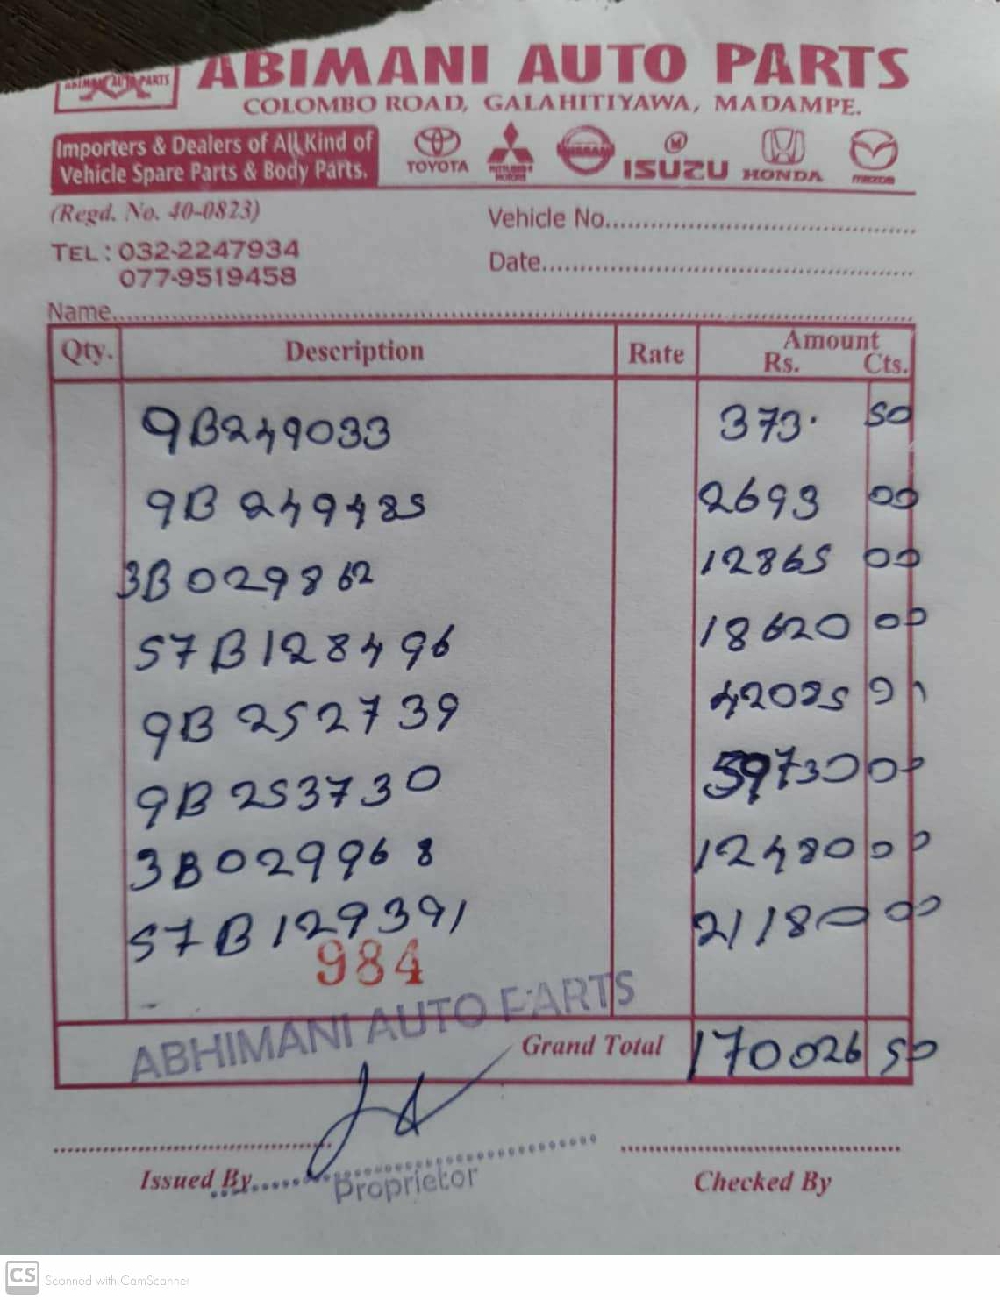 ABIMANI AUTO PARTS
ABIMANI AUTO PARTS
COLOMBO ROAD, GALAHITIYAWA, MADAMPE.
Importers & Dealers of All Kind of
Vehicle Spare Parts & Body Parts.
TOYOTA MITSUBISHI MOTORS NISSAN ISUZU HONDA mazda
(Regd. No. 40-0823)
Vehicle No.
TEL : 032-2247934
077-9519458
Date
Name
Qty. Description Rate Amount
Rs. Cts.
9B249033 373. 50
9B 249485 2693 00
3B029862 12865 00
57B128496 18620 00
9B 252739 42025 00
9B 253730 59730 00
3B029968 12480 00
57B129391 21180 00
984
ABHIMANI AUTO PARTS
Grand Total 170026 50
Issued By
Proprietor
Checked By
CS Scanned with CamScanner